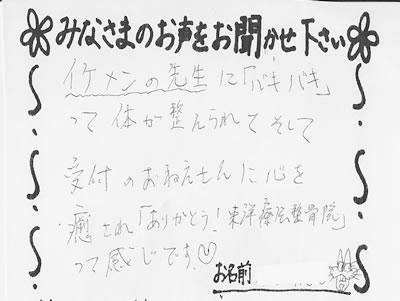 みなさまのお声をお聞かせ下さい
イケメンの先生に「バキバキ」
って体が整えられて そして
受付のおねえさんに心を
癒され「ありがとう!東洋療法整骨院」
って感じです。
お名前